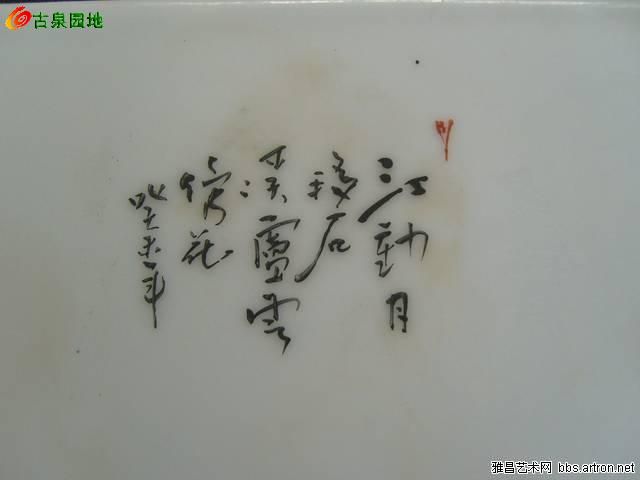 古泉园地
江動月
移石
溪虛雲
傍花
癸未年
雅昌艺术网 bbs.artron.net